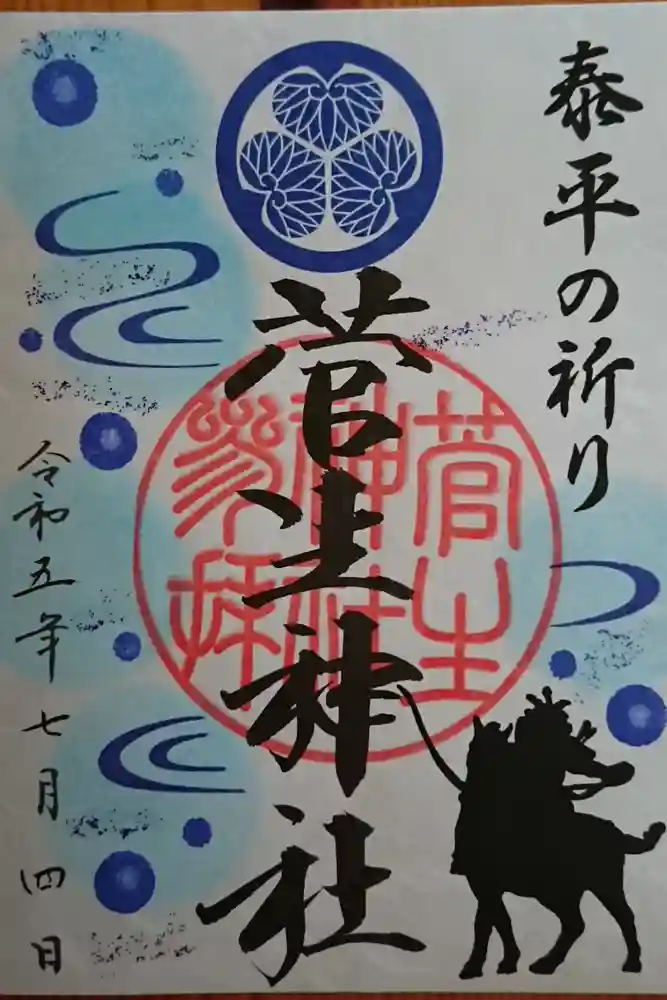 泰平の祈り
菅生神社
菅生
神社
参拝
令和五年七月四日